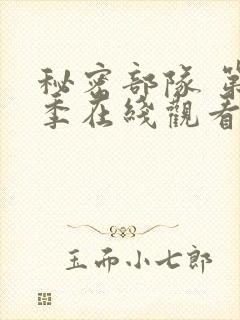 秘密部隊 第
季在綫觀看
玉而小七郎